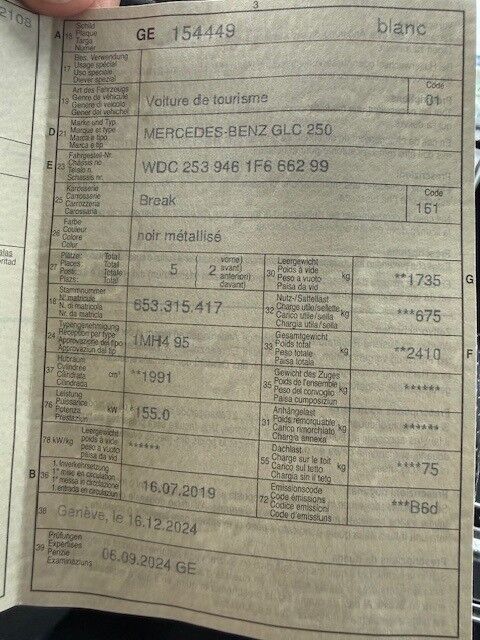 3
A 15 Schild
Plaque
Targa
Numer
GE 154449 blanc
17 Bes. Verwendung
Usage spécial
Uso speciale
Diever spezial
19 Art des Fahrzeugs
Genre de véhicule
Genere di veicolo
Gener dal vehichel
Voiture de tourisme
Code
01
D 21 Marke und Typ
Marque et type
Marca e tipo
Marca e tip
MERCEDES-BENZ GLC 250
E 23 Fahrgestell-Nr.
Châssis no
Telaio n.
Schassis nr.
WDC 253 946 1F6 662 99
25 Karosserie
Carrosserie
Carrozzeria
Carossaria
Break
Code
161
26 Farbe
Couleur
Colore
Colur
noir métallisé
27 Plätze: Total
Places: Total
Posti: Totale
Plazs: Total
5 ( 2 vorne)
avant)
anteriori)
davant)
30 Leergewicht
Poids à vide
Peso a vuoto
Paisa da vid
kg
**1735
G
18 Stammnummer
N° matricule
N. di matricola
Nr. da matricla
653.315.417
32 Nutz-/Sattellast
Charge utile/sellette
Carico utile/sella
Chargia utila/sella
kg
***675
24 Typengenehmigung
Réception par type
Approvazione del tipo
Approvaziun dal tip
1MH4 95
33 Gesamtgewicht
Poids total
Peso totale
Paisa totala
kg
**2410
F
37 Hubraum
Cylindrée
Cilindrata
Cilindrada
cm³
**1991
35 Gewicht des Zuges
Poids de l'ensemble
Peso del convoglio
Paisa cumposiziun
kg
******
76 Leistung
Puissance
Potenza
Prestaziun
kW
*155.0
31 Anhängelast
Poids remorquable
Carico rimorchiato
Chargia annexa
kg
******
78 kW/kg Leergewicht
poids à vide
peso a vuoto
paisa da vid
******
55 Dachlast
Charge sur le toit
Carico sul tetto
Chargia sin il tetg
kg
****75
B 36 1. Inverkehrsetzung
1re mise en circulation
1a messa in circolazione
1. entrada en circulaziun
16.07.2019
72 Emissionscode
Code émissions
Codice emissioni
Code d'emissiuns
***B6d
38 Genève, le 16.12.2024
39 Prüfungen
Expertises
Perizie
Examinaziuns
06.09.2024 GE